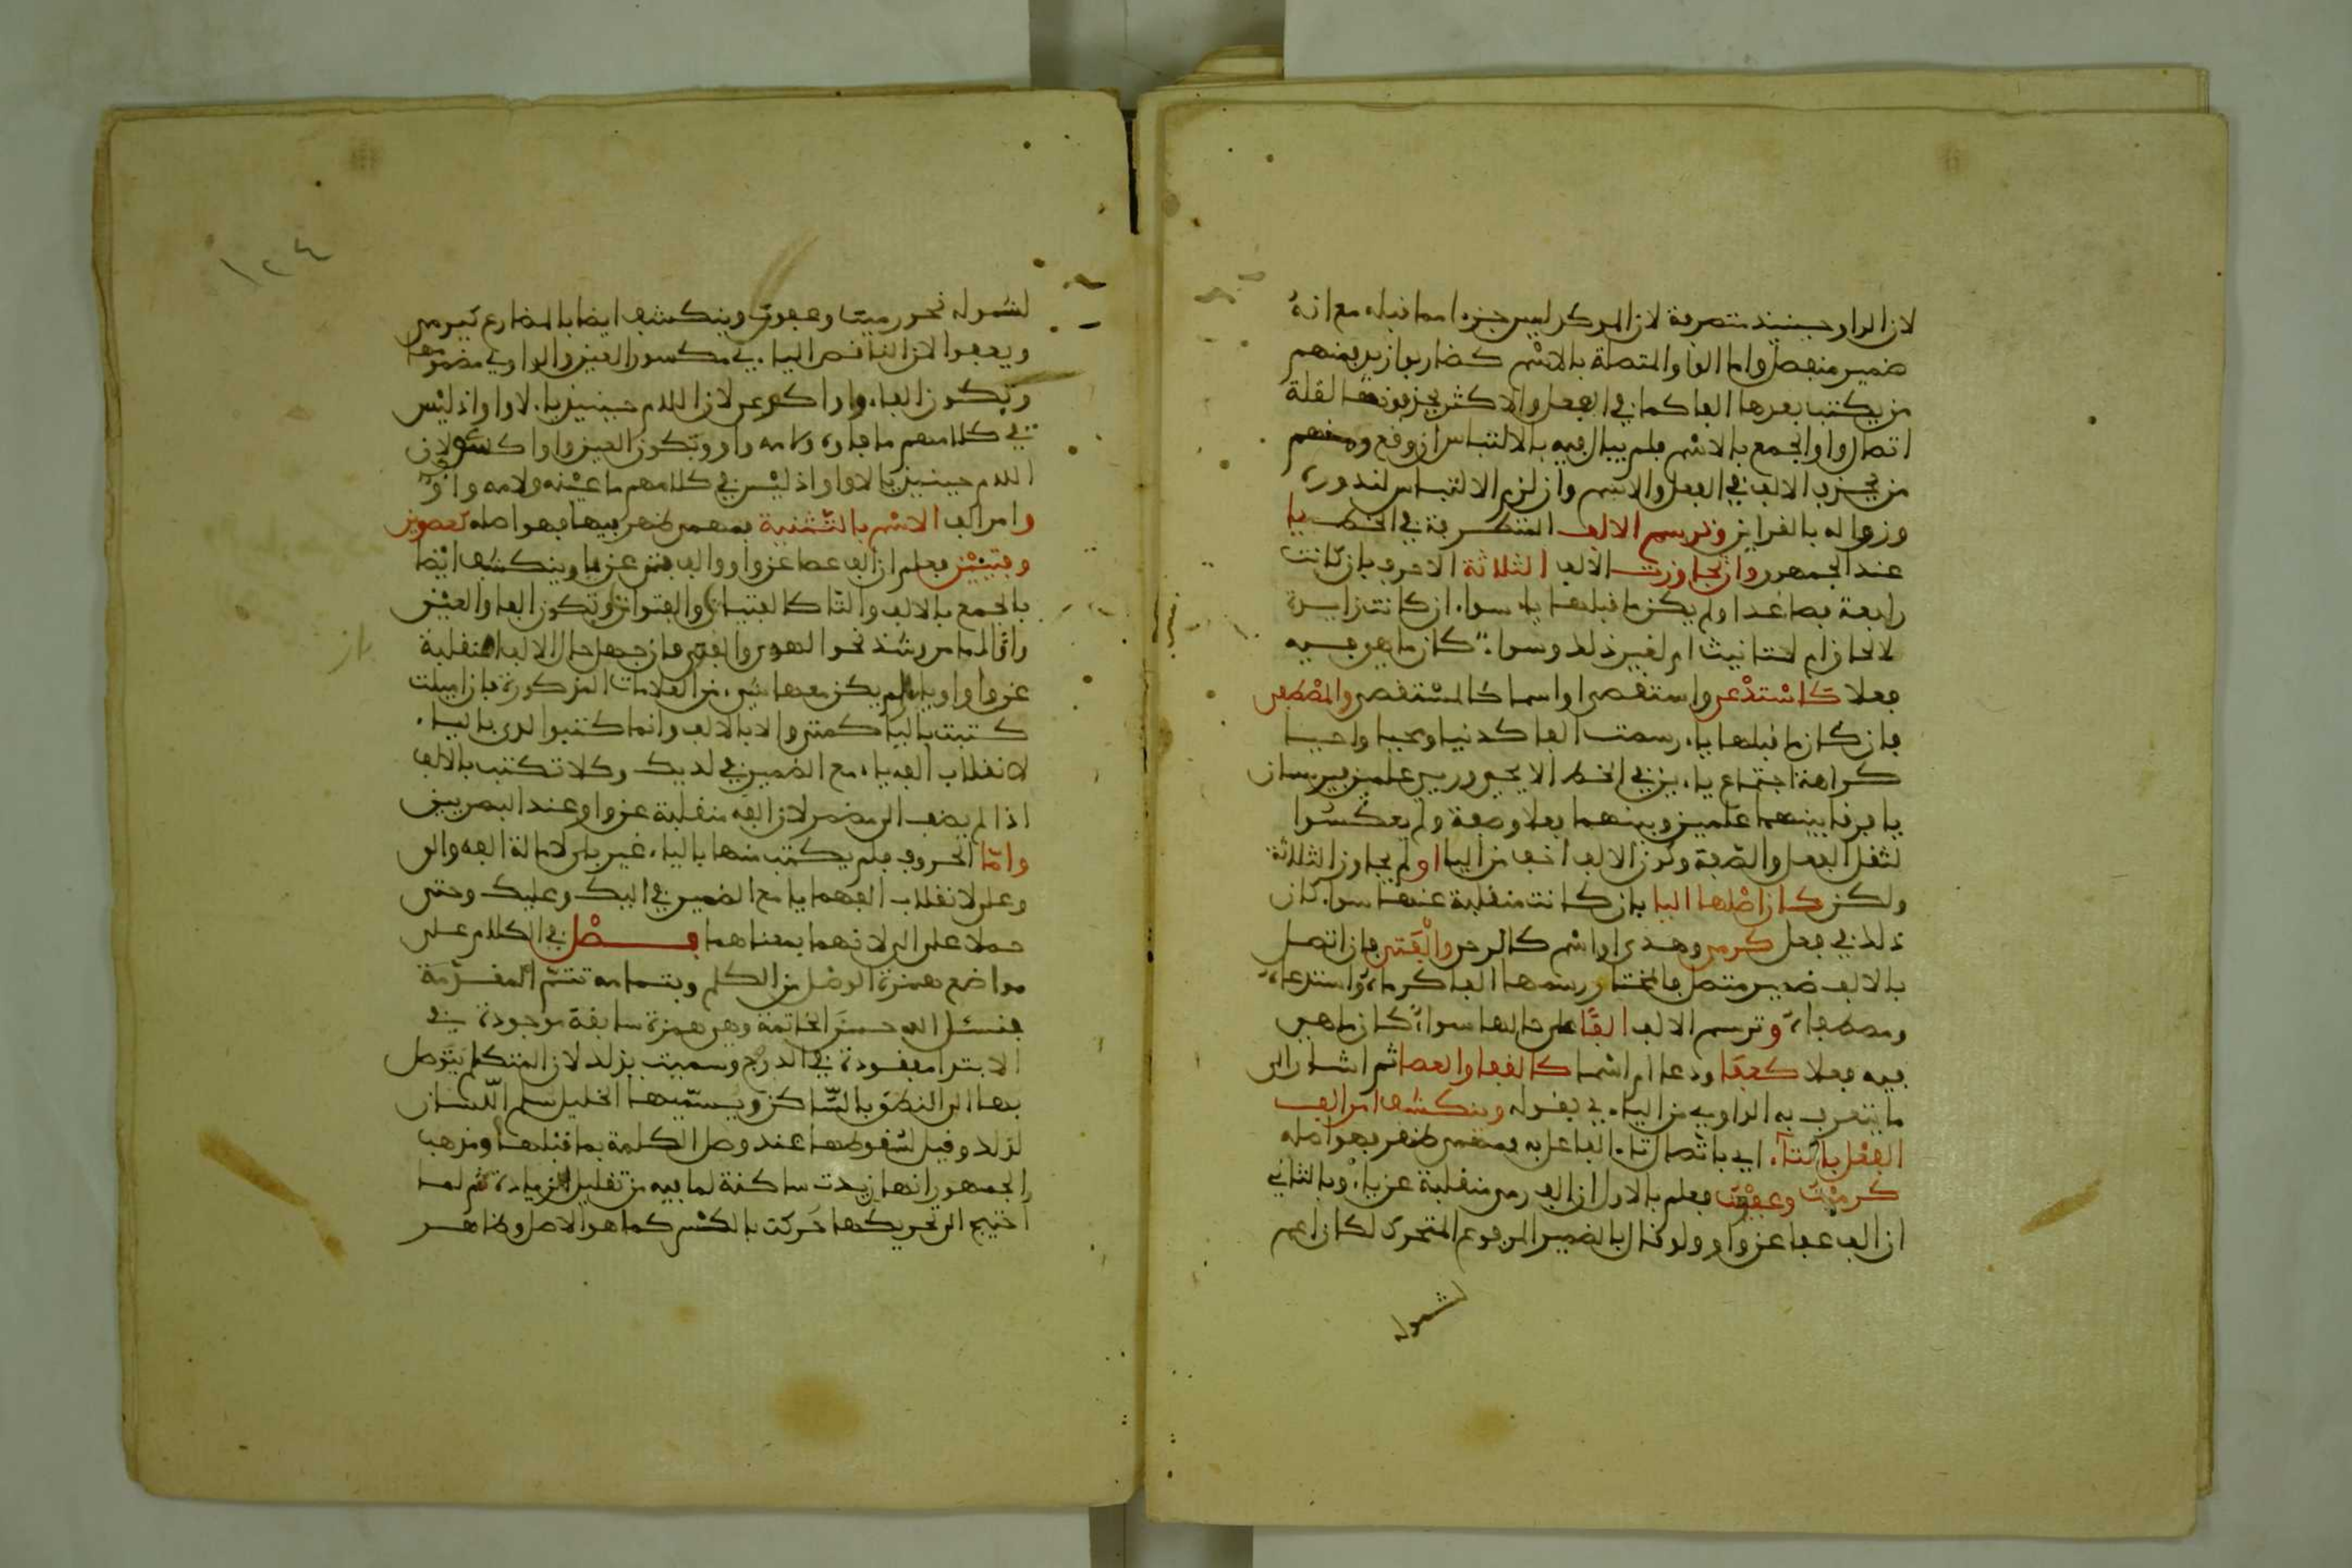 لان الواو حينئذ متصرفة لان المدكر ليس جزءا مما قبله مع انه
ضمير منفصل واما الواو المتصلة بالاسم كضاربوا زيد فمنهم
من يكتب بعدها الفا كما في الفعل والاكثر يحذفونها لقلة
اتصال واو الجمع بالاسم فلم يبال فيه بالالتباس ان وقع ومنهم
من يحذف الالف في الفعل والاسم وان لزم الالتباس لندوره
وزواله بالقراين وترسم الالف المتطرفة في الخط يا
عند الجمهور وان تجاوزت الالف الثلاثة الاحرف بان كانت
رابعة فصاعدا ولم يكن ما قبلها ياء سواء ان كانت زايدة
لالحاق ام لتانيث ام لغير ذلك وسواء كان ما هي فيه
فعلا كاستدعى واستقصى او اسما كالمستقصى والمصطفى
فان كان ما قبلها ياء رسمت الفا كدنيا ومحيا واحيا
كراهة اجتماع ياءين في الخط الا يحيى وريى علمين فيرسمان
يا فرقا بينهما علمين وبينهما فعلا وصفة ولم يعكسوا
لثقل الفعل والصفة وكون الالف اخف من اليا او لم يجاوز الثلاثة
ولكن كان اصلها اليا بان كانت منقلبة عنها سواء كان
ذلك في فعل كرمى وهدى او اسم كالرحى والفتى فان اتصل
بالالف ضمير متصل فالمختار رسمها الفا كرماه واستدعاه
ومصطفاه وترسم الالف الفا على حالها سواء كان ما هي
فيه فعلا كعفا ودعا ام اسما كالقفا والعصا ثم اشار الى
ما يتعرف به الواوي من اليائي بقوله وينكشف امر الف
الفعل بالتاء اي باتصال تاء الفاعل به فمهما ظهر فهو اصله
كرميت وعفوت فعلم بالاول ان الف رمى منقلبة عن ياء وبالثاني
ان الف عفا عن واو ولو قال بالضمير المرفوع المتحرك لكان اعم
لشموله
١٢٤
لشموله نحو رمينا وعفون وينكشف ايضا بالمضارع كيرمي
ويعفوا لان الناقص اليائي مكسور العين والواوي مضمومها
وتكون الفاء واوا كوعى لان اللام حينئذ ياء لا واو اذ ليس
في كلامهم ما فاوه ولامه واو وتكون العين واوا كشوى لان
اللام حينئذ يا لا واو اذ ليس في كلامهم ما عينه ولامه واو
وامر الف الاسم بالتثنية فمهما ظهر فيها فهو اصله كعصوين
وفتيين فعلم ان الف عصا عن واو والف فتى عن يا وينكشف ايضا
بالجمع بالالف والتا كالفتيات والقنوات وتكون الفا والعين
واوا الا ما شذ نحو الهوى والقوى فان جهل حال الالف امنقلبة
عن واو او ياء ولم يكن معها شيء من العلامات المذكورة فان اميلت
كتبت باليا كمتى والا بالالف وانما كتبوا لدى باليا
لانقلاب الفه ياء مع الضمير في لديك وكلا تكتب بالالف
اذا لم يضف الى مضمر لان الفه منقلبة عن واو عند البصريين
واما الحروف فلم يكتب منها بالياء غير بلى لامالة الفه والى
وعلى لانقلاب الفهما يا مع الضمير في اليك وعليك وحتى
حملا على الى لانهما بمعناهما فصل في الكلام على
مواضع همزة الوصل من الكلم وبتمامه تتم المقدمة
فنسئل الله حسن الخاتمة وهي همزة سابقة موجودة في
الابتدا مفقودة في الدرج وسميت بذلك لان المتكلم يتوصل
بها الى النطق بالساكن ويسميها الخليل سلم اللسان
لذلك وقيل لسقوطها عند وصل الكلمة بما قبلها ومذهب
الجمهور انها زيدت ساكنة لما فيه من تقليل الزيادة ثم لما
احتيج الى تحريكها حركت بالكسر كما هو الاصل وظاهر